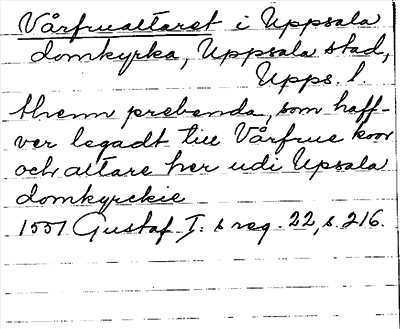 Vårfrualtaret i Uppsala
domkyrka, Uppsala stad,
Upps. l.
thenn prebenda, som haff-
ver legadt till Vårfrue koor
och altare her udi Upsala
domkyrckie
1551 Gustaf I:s reg. 22, s. 216.